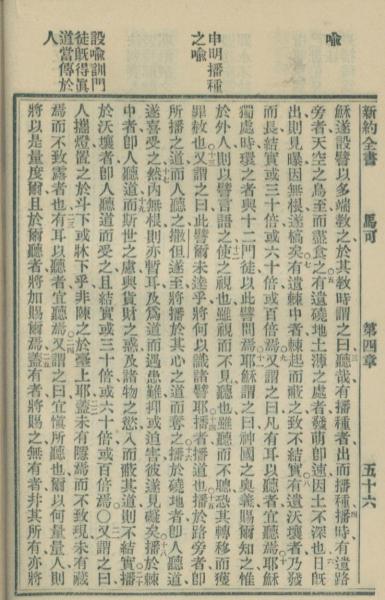 喻
申明播種
之喻
設喻訓門
徒旣得眞
道當傳於
人
新約全書 馬可 第四章 五十六
穌遂設譬以多端教之於其教時謂之曰聽哉有播種者出而播種播時有遺路
旁者天空之鳥至而盡食之有遺磽地土薄之處者發萌卽速因土不深也日旣
出則見曝因無根遂槁矣有遺棘中者棘起而蔽之致不結實有遺沃壤者乃發
而長結實或三十倍或六十倍或百倍焉又謂之曰凡有耳以聽者宜聽焉耶穌
獨處時環之者與十二門徒以此譬問焉耶穌謂之曰神國之奧義賜爾知之惟
於外人則以譬言語之使之視也雖視而不見聽也雖聽而不聰恐其轉移而獲
罪赦也又謂之曰此譬爾未達乎將何以識諸譬耶播者播道也播於路旁者卽
所播之道而人聽之撒但遂至將播於其心之道而奪之播於磽地者卽人聽道
遂喜受之然內無根則亦暫耳及爲道而遇患難抑或迫害彼遂見礙矣播於棘
中者卽人聽道而斯世之慮與貨財之惑及諸物之慾入而蔽其道則不結實播
於沃壤者卽人聽道而受之且結實或三十倍或六十倍或百倍焉〇又謂之曰
人攜燈置之於斗下或牀下乎非陳之於臺上耶蓋未有隱焉而不致現未有藏
焉而不致露者也有耳以聽者宜聽焉又謂之曰宜愼所聽也爾以何量量人則
將以是量度爾且於爾聽者將加賜爾焉蓋有者將賜之無有者並其所有亦將